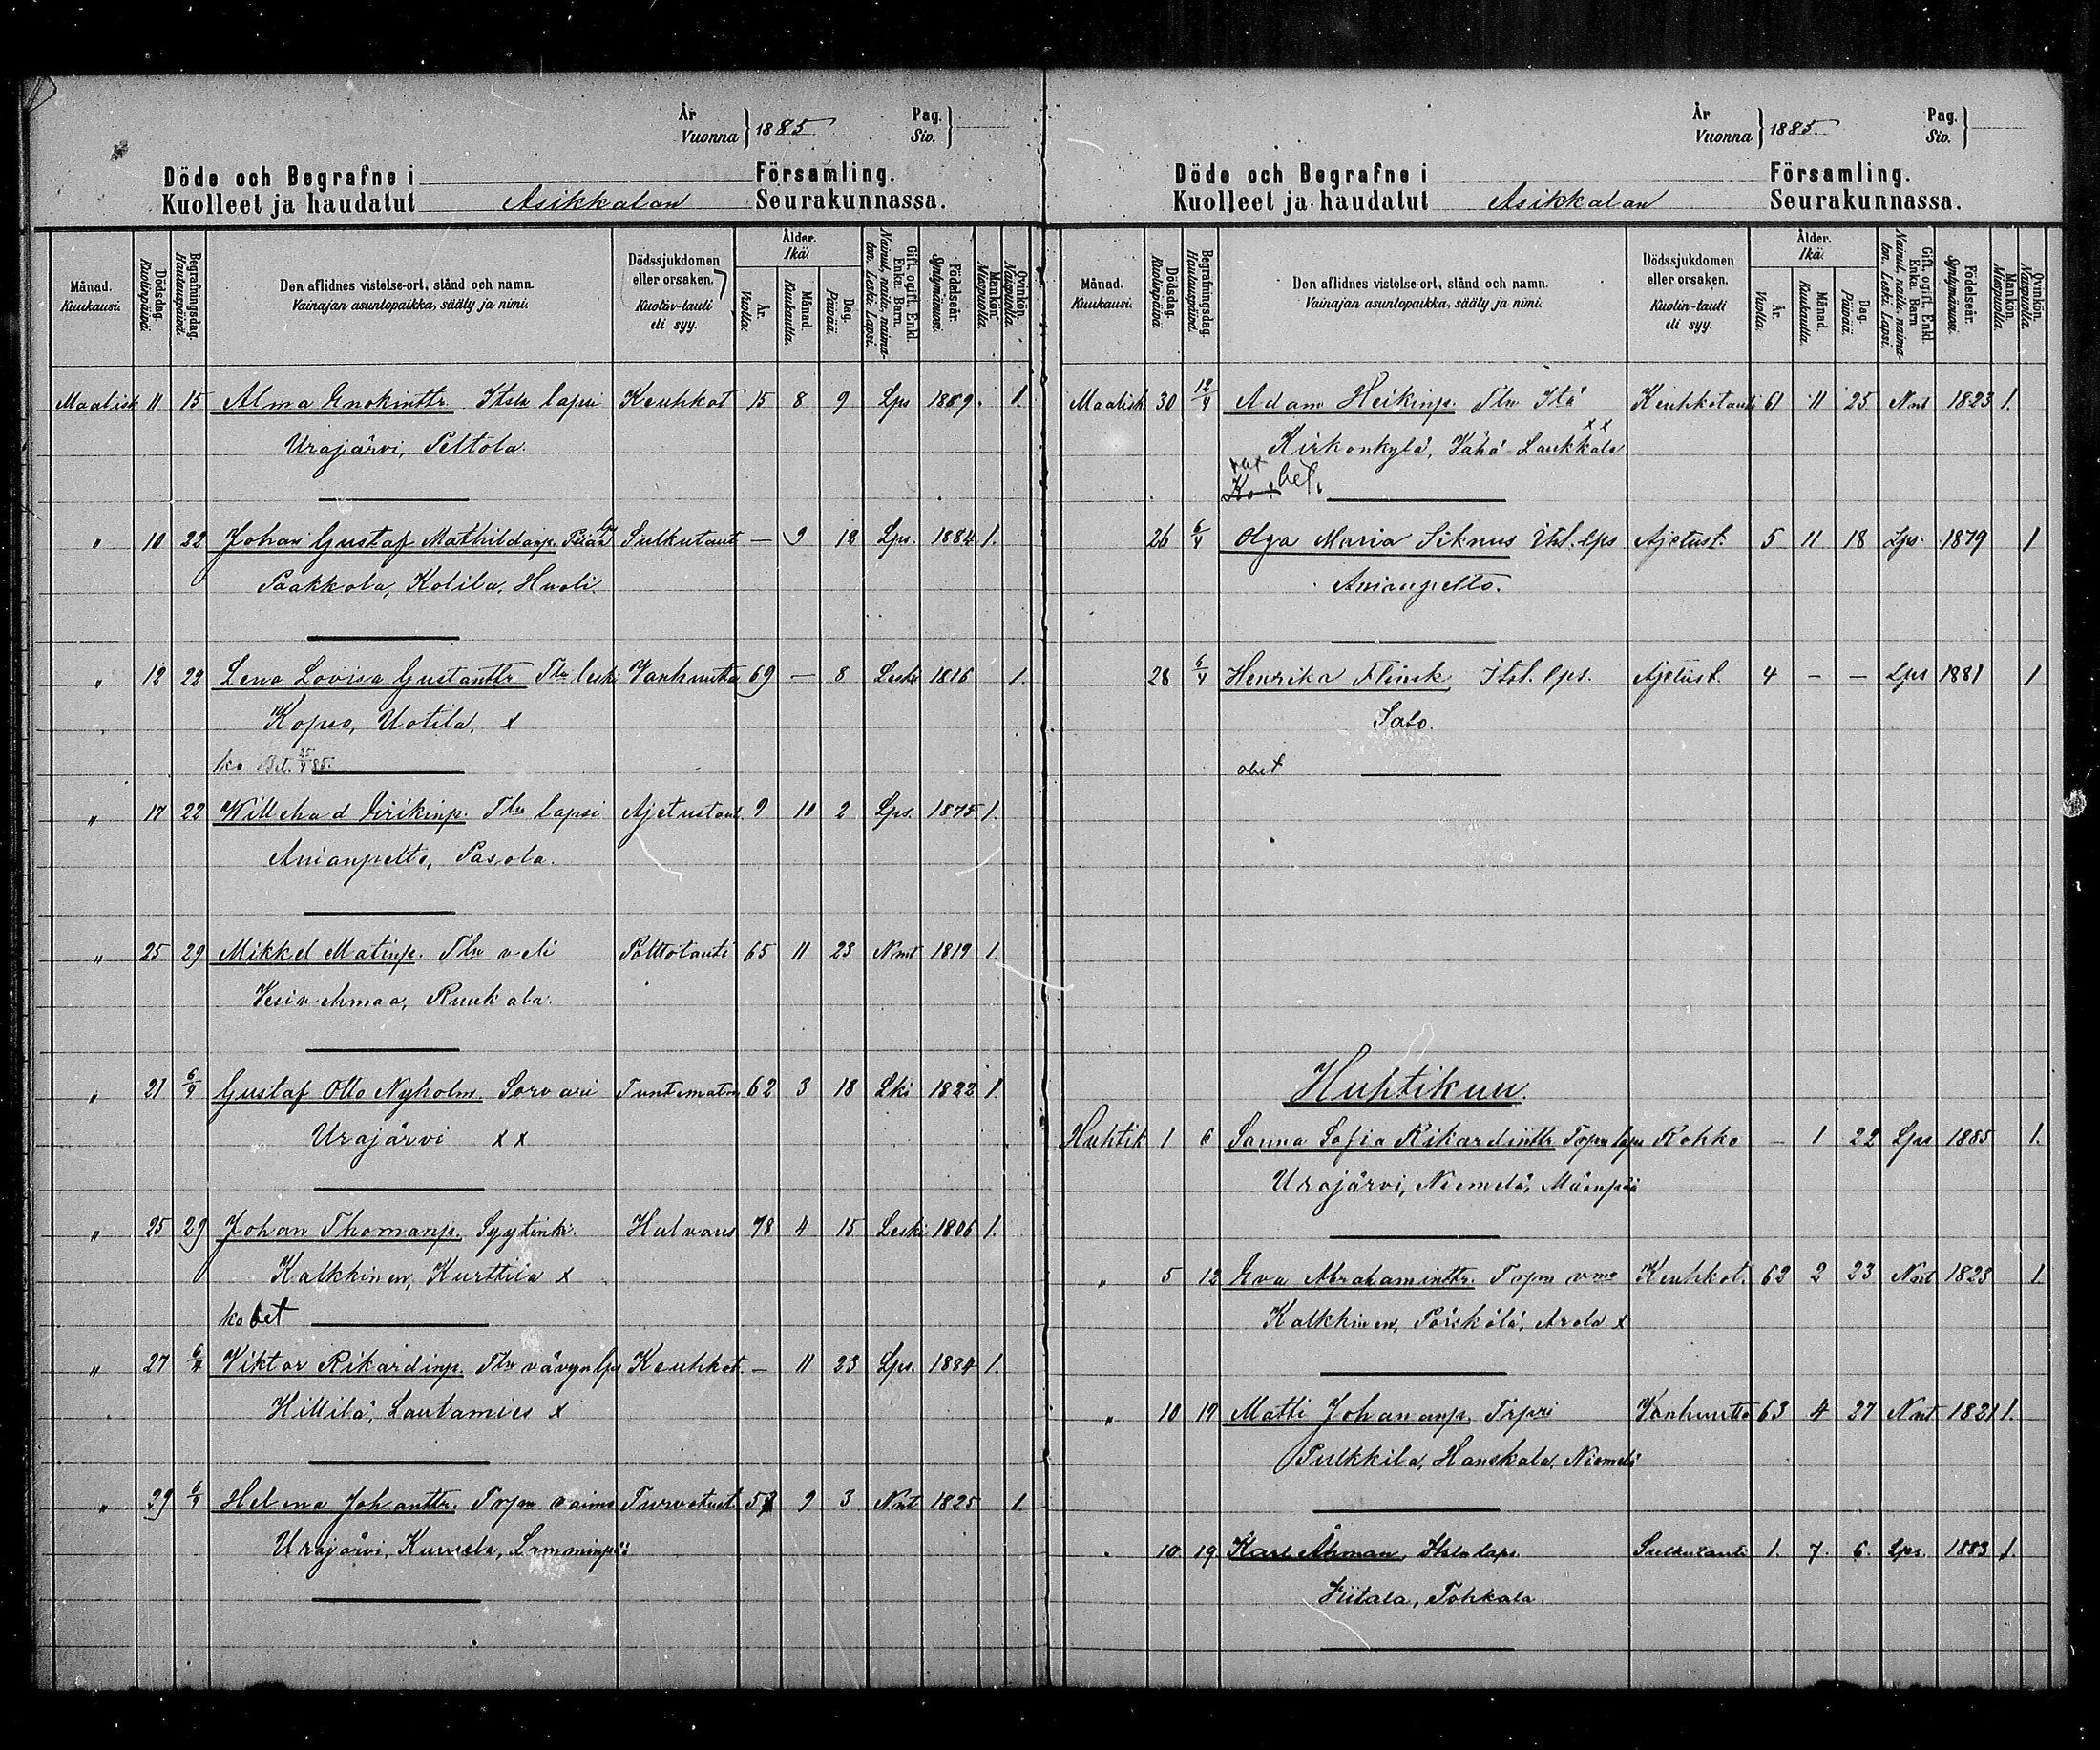 År
Vuonna } 1885
Pag.
Siv. }
Döde och Begrafne i Församling.
Kuolleet ja haudatut Asikkalan Seurakunnassa.
Månad. Kuukausi. Dödsdag. Kuolinpäivä. Begrafningsdag. Hautauspäivä. Den aflidnes vistelse-ort, stånd och namn. Vainajan asuntopaikka, sääty ja nimi. Dödssjukdomen eller orsaken. Kuolin-tauti eli syy. Ålder. Ikä. År. Vuotta. Månad. Kuukautta. Dag. Päivää. Gift, ogift, Enkl. Enka. Barn. Nainut, naitu, naimaton. Leski. Lapsi. Födelseår. Syntymävuosi. Mankön. Miespuolia. Qvinkön. Naispuolia.
Maalisk 11 15 Alma Enokinttr. Itsln lapsi Keuhkot 15 8 9 Lps 1869. 1.
Urajärvi, Peltola.
" 10 22 Johan Gustaf Mathildanp. Sulkutaut — 9 12 Lps. 1884 1.
Paakkola, Kolila, Huoli.
" 12 22 Lena Lovisa Gustanttr Tln leski Vanhuutta 69 — 8 Leski 1816 1.
Kopso, Uotila. x
ko 85.
" 17 22 Willehad Eirikinp. Tln lapsi Ajetustaut. 9 10 2 Lps. 1875 1.
Anianpelto, Pasola.
" 25 29 Mikkel Matinp. Tln veli Polttotauti 65 11 23 Nmt 1819 1.
Vesivehmaa, Ruukala.
" 21 6/4 Gustaf Otto Nyholm. Sorvari Tuntematon 62 3 18 Lki 1822 1.
Urajärvi x x
" 25 29 Johan Thomanp. Syytinki. Halvaus 78 4 15 Leski 1806 1.
Kalkkinen, Kurttila x
ko bet
" 27 6/4 Viktor Rikardinp. Tln vävyn lps Keuhkot. — 11 23 Lps. 1884 1.
Hillilä, Lautamies x
" 29 6/4 Helena Johanttr. Torpn vaimo Turvotust. 9 3 Nnt 1825 1.
Urajärvi, Kurvela, Lamminpää
År
Vuonna } 1885
Pag.
Siv. }
Döde och Begrafne i Församling.
Kuolleet ja haudatut Asikkalan Seurakunnassa.
Månad. Kuukausi. Dödsdag. Kuolinpäivä. Begrafningsdag. Hautauspäivä. Den aflidnes vistelse-ort, stånd och namn. Vainajan asuntopaikka, sääty ja nimi. Dödssjukdomen eller orsaken. Kuolin-tauti eli syy. Ålder. Ikä. År. Vuotta. Månad. Kuukautta. Dag. Päivää. Gift, ogift, Enkl. Enka. Barn Nainut, naitu, naimaton. Leski. Lapsi. Födelseår. Syntymävuosi. Mankön. Miespuolia. Qvinkön. Naispuolia.
Maalisk 30 12/4 Adam Heikinp. Tln Itä Keuhkotauti 61 11 25 Nmt 1823 1.
x x
Kirkonkylä, Vähä-Laukkala
bet.
26 6/4 Olga Maria Siknus Itsl. lps Ajetust. 5 11 18 Lps. 1879 1
Anianpelto.
28 6/4 Henrika Flinck Itsl. lps. Ajetust. 4 — — Lps 1881 1
Salo.
Huhtikuu.
Huhtik 1 6 Sanna Sofia Rikardinttr Torpn lapsi Rohko — 1 22 Lps 1885 1.
Urajärvi, Niemelä, Mäenpää
" 5 12 Eva Abrahaminttr. Torpn vmo Keuhkot. 62 2 23 Nnt 1823 1
Kalkkinen, Pörskölä, Arola x
" 10 19 Matti Johananp. Trpri Vanhuutta 63 4 27 Nnt 1821 1.
Pulkkila, Hanskala, Niemelä
" 10 19 Karl Åhman Itsln laps. Sulkutauti 1. 7. 6. Lps. 1883 1.
Viitala, Tohkala.